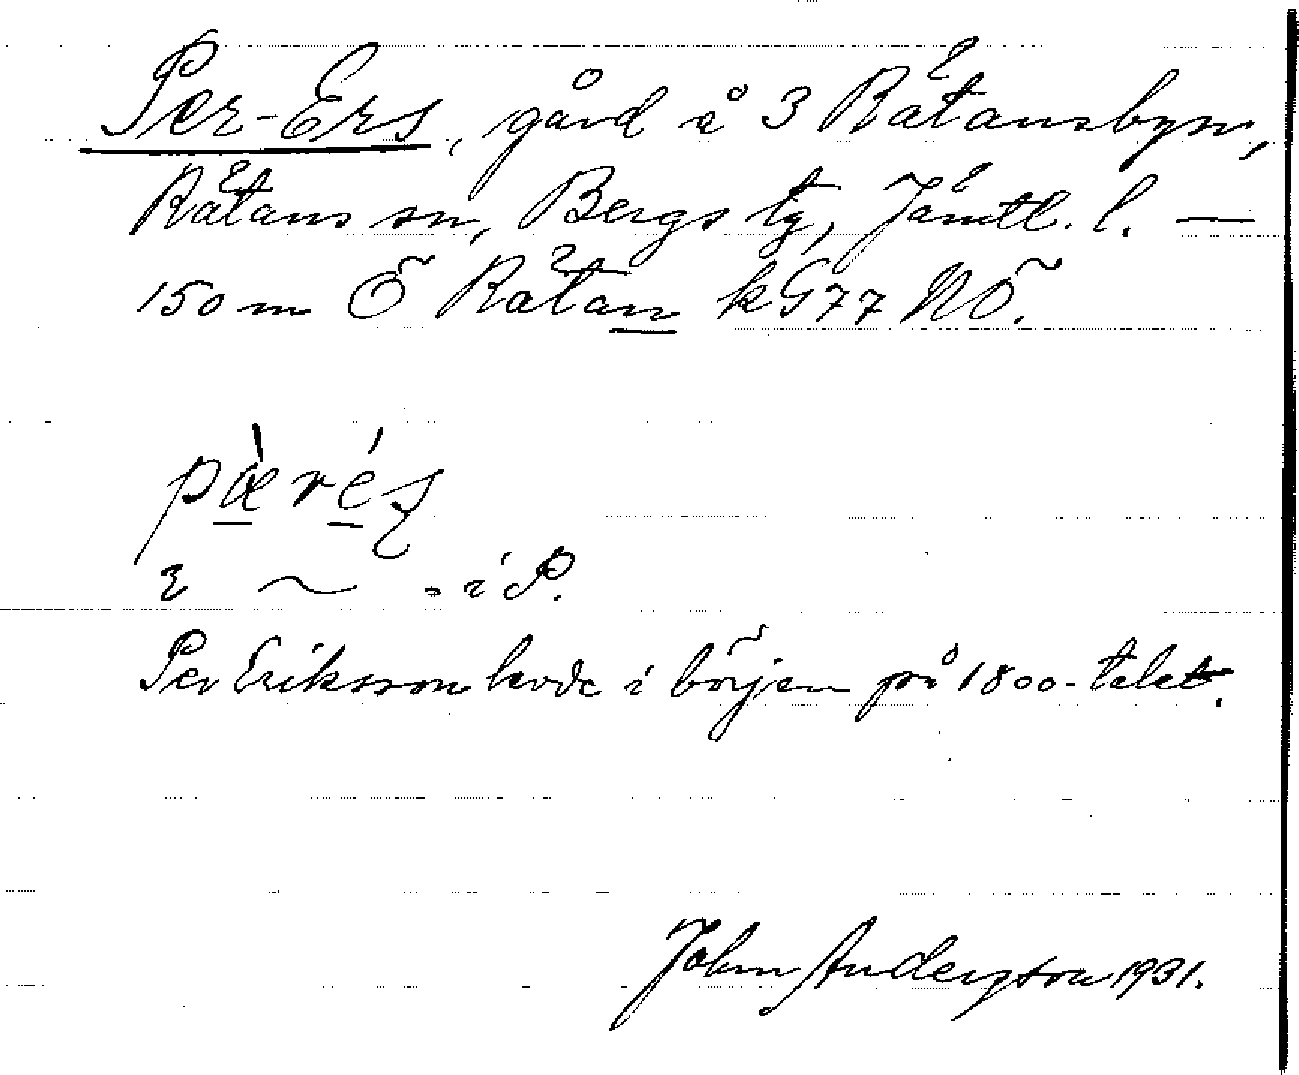 Per-Ers, gård å 3 Rätansbyn,
Rätans sn, Bergs tg, Jämtl. l. —
150 m Ö Rätan k G77 NÖ.
pæ̀réʂ
i P.
Per Eriksson levde i början på 1800-talet.
John Andersson 1931.